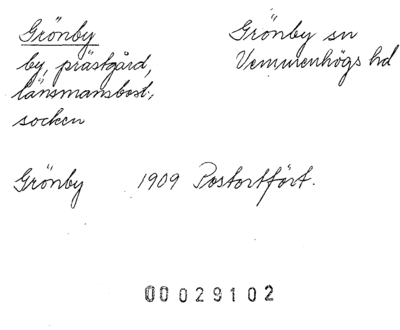 Grönby
Grönby sn
by, prästgård,
Vemmenhögs hd
länsmansbost.,
socken
Grönby 1909 Postortfört.
00029102